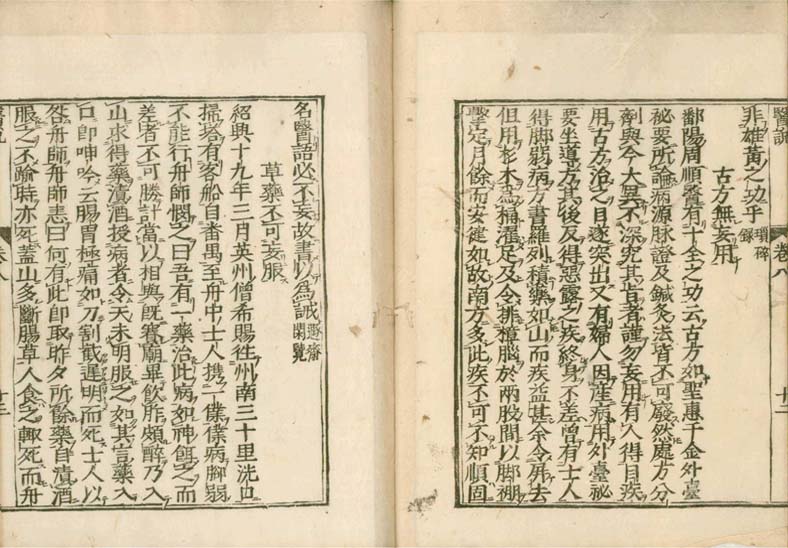 醫說
卷八
十二
非雄黃之功乎 瑣碎錄
古方無妄用
鄱陽周順醫有十全之功云古方如聖惠千金外臺
祕要所論病源脉證及鍼灸法皆不可廢然處方分
劑與今大異不深究其旨者謹勿妄用有人得目疾
用古方治之目遂突出又有婦人因產病用外臺祕
要坐導方其後反得惡露之疾終身不差曾有士人
得脚弱病方書羅列積藥如山而疾益甚余令屏去
但用杉木為桶濯足及令排樟腦於兩股間以脚綳
繫定月餘而安健如故南方多此疾不可不知順固
名醫語必不妄故書以為誡 遯齋閑覽
草藥不可妄服
紹興十九年三月英州僧希賜往州南三十里洸口
掃塔有客船自番禺至舟中士人携一僕僕病脚弱
不能行舟師憫之曰吾有一藥治此病如神餌之而
差者不可勝計當以相與既賽廟畢飲胙頗醉乃入
山求得藥漬酒授病者令天未明服之如其言藥入
口卽呻吟云腸胃極痛如刀割截遲明而死士人以
咎舟師舟師恚曰何有此卽取昨夕所餘藥自漬酒
服之不踰時亦死蓋山多斷腸草人食之輒死而舟